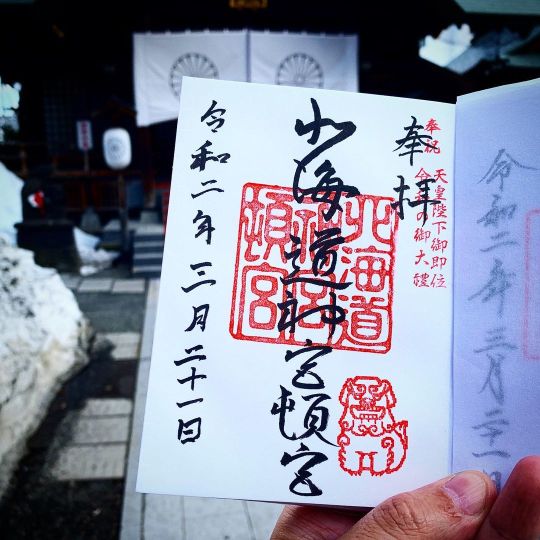 奉拝
奉祝 天皇陛下御即位
令和の御大禮
北海道神宮頓宮
北海道
神宮
頓宮
令和二年三月二十一日
令和二年三月二十一日